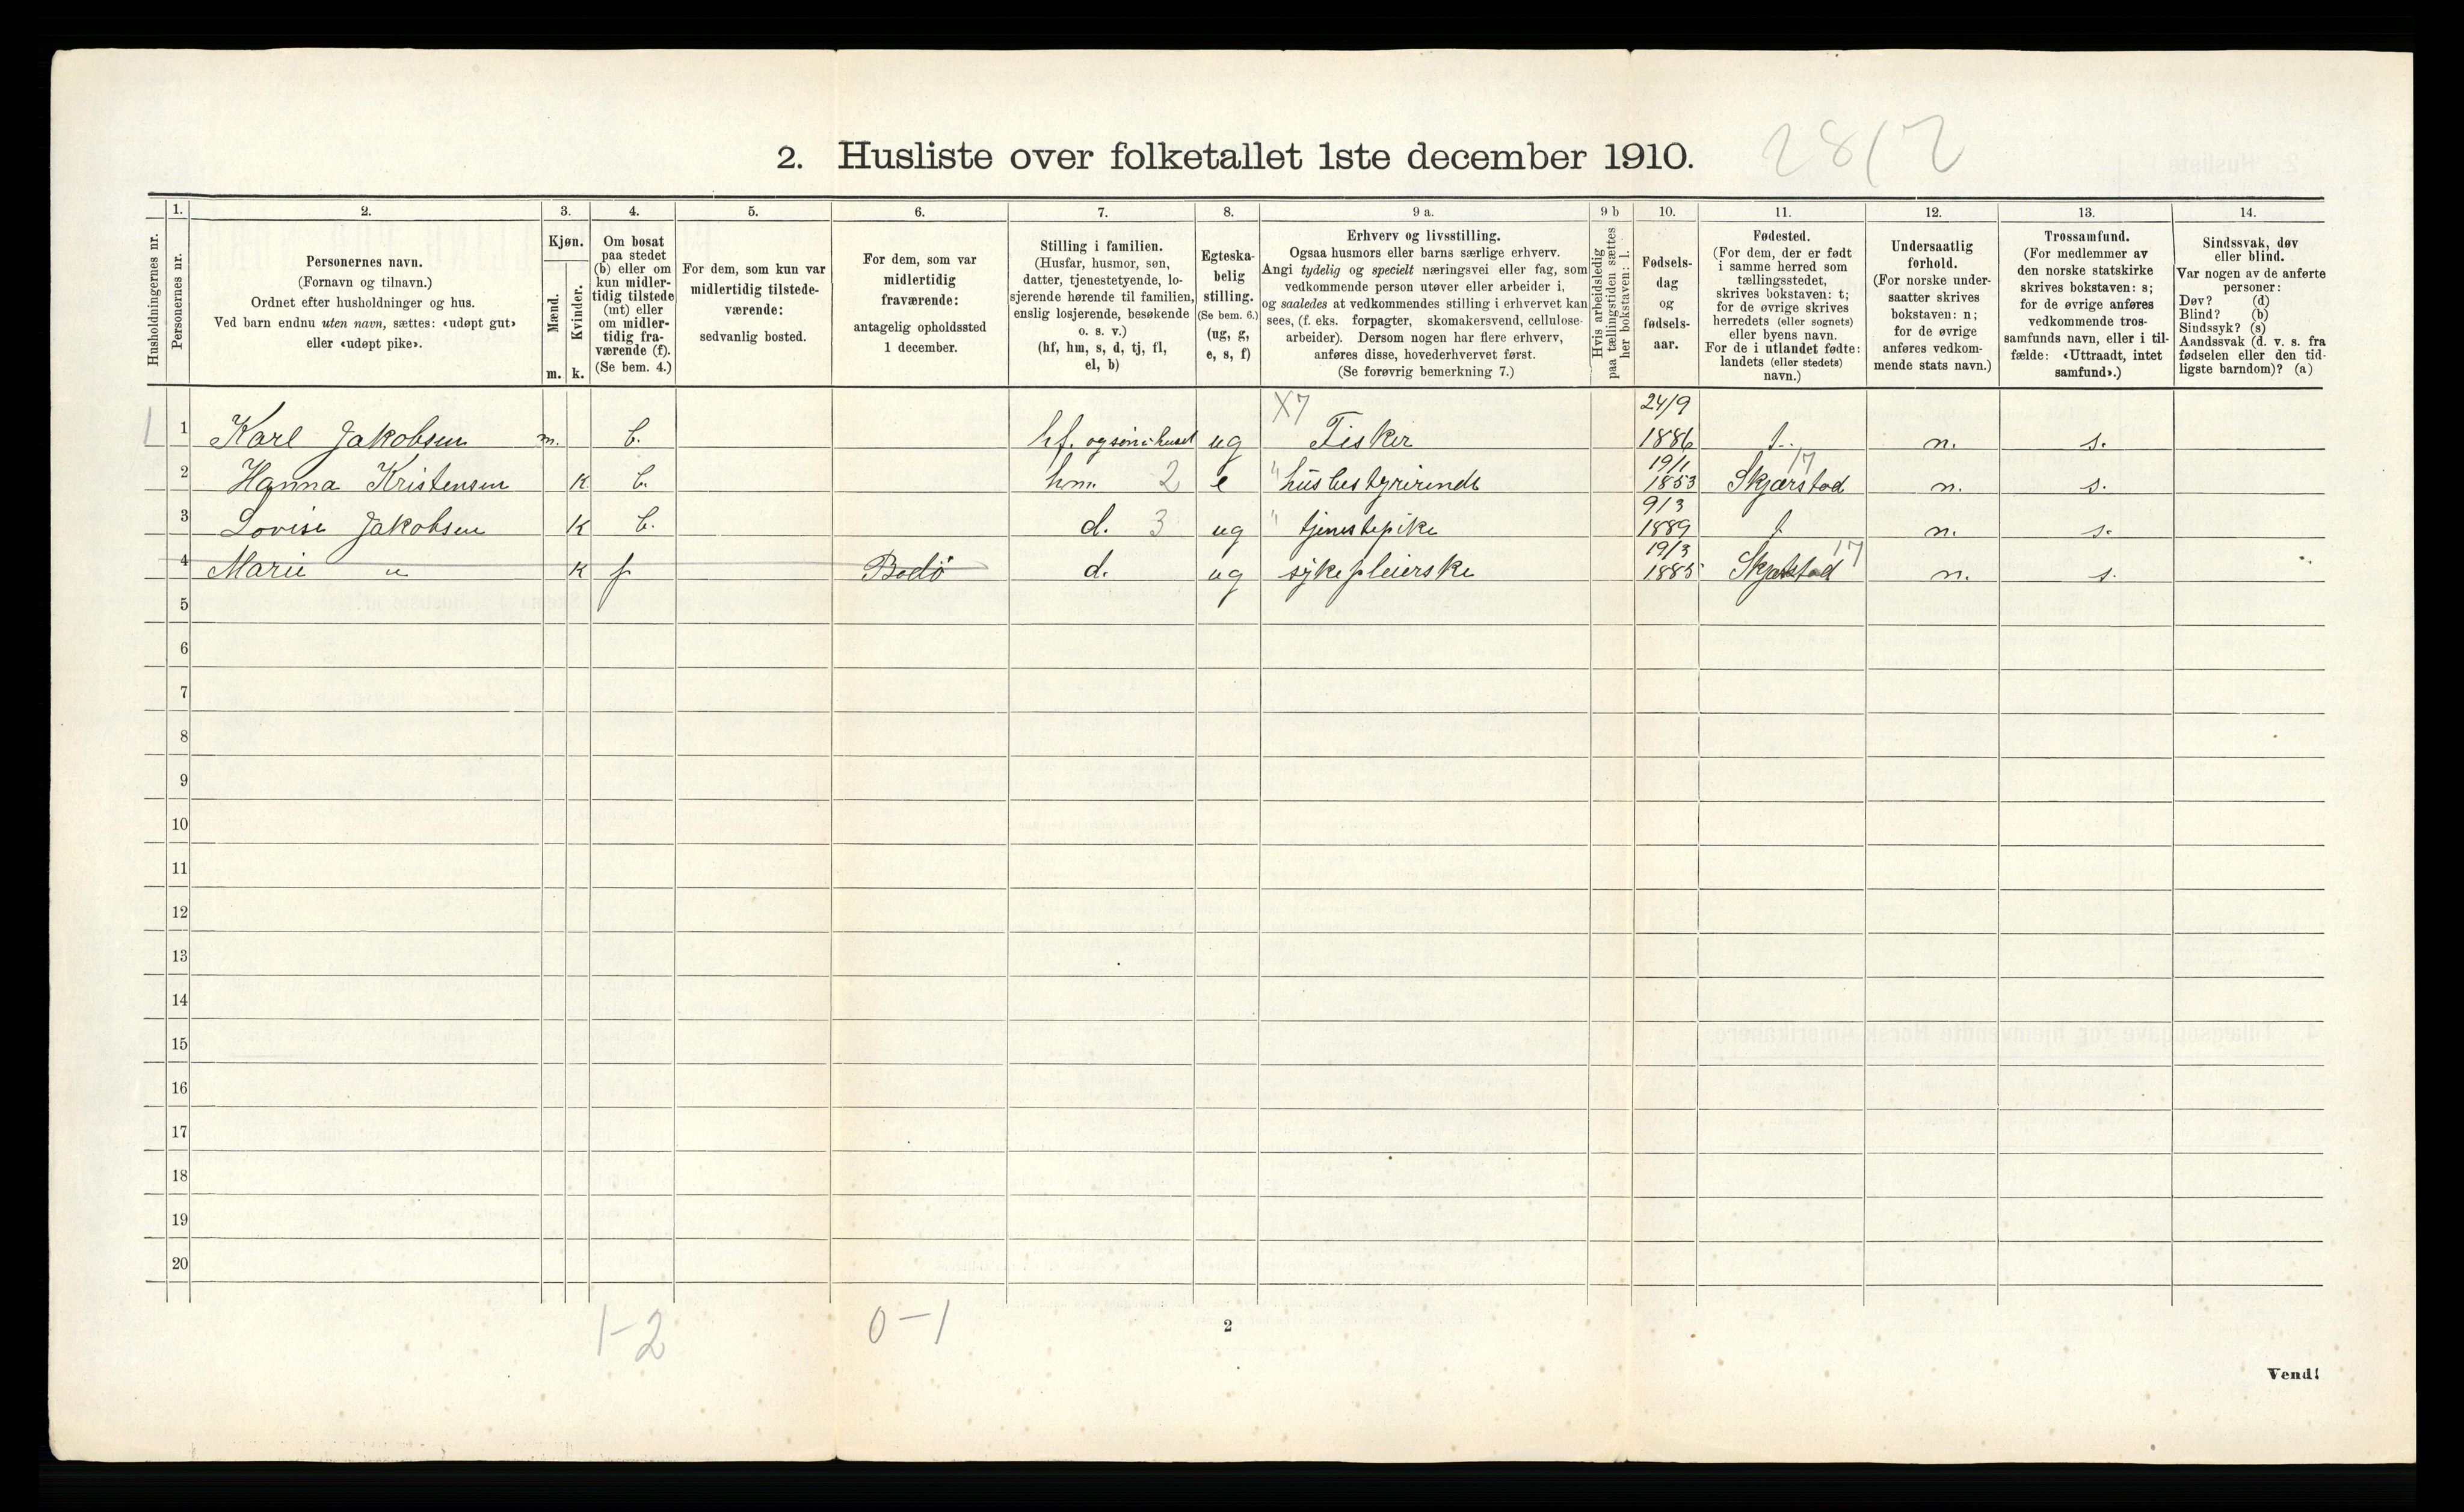 2. Husliste over folketallet 1ste december 1910.
28/2
Husholdningernes nr.
1.
Personernes nr.
2.
Personernes navn.
(Fornavn og tilnavn.)
Ordnet efter husholdninger og hus.
Ved barn endnu uten navn, sættes: «udøpt gut»
eller «udøpt pike».
3.
Kjøn.
Mænd.
Kvinder.
m. k.
4.
Om bosat
paa stedet
(b) eller om
kun midler-
tidig tilstede
(mt) eller
om midler-
tidig fra-
værende (f).
(Se bem. 4.)
5.
For dem, som kun var
midlertidig tilstede-
værende:
sedvanlig bosted.
6.
For dem, som var
midlertidig
fraværende:
antagelig opholdssted
1 december.
7.
Stilling i familien.
(Husfar, husmor, søn,
datter, tjenestetyende, lo-
sjerende hørende til familien,
enslig losjerende, besøkende
o. s. v.)
(hf, hm, s, d, tj, fl,
el, b)
8.
Egteska-
belig
stilling.
(Se bem. 6.)
(ug, g,
e, s, f)
9 a.
Erhverv og livsstilling.
Ogsaa husmors eller barns særlige erhverv.
Angi tydelig og specielt næringsvei eller fag, som
vedkommende person utøver eller arbeider i,
og saaledes at vedkommendes stilling i erhvervet kan
sees, (f. eks. forpagter, skomakersvend, cellulose-
arbeider). Dersom nogen har flere erhverv,
anføres disse, hovederhvervet først.
(Se forøvrig bemerkning 7.)
9 b
Hvis arbeidsledig
paa tællingstiden sættes
her bokstaven: l.
10.
Fødsels-
dag
og
fødsels-
aar.
11.
Fødested.
(For dem, der er født
i samme herred som
tællingsstedet,
skrives bokstaven: t;
for de øvrige skrives
herredets (eller sognets)
eller byens navn.
For de i utlandet fødte:
landets (eller stedets)
navn.)
12.
Undersaatlig
forhold.
(For norske under-
saatter skrives
bokstaven: n;
for de øvrige
anføres vedkom-
mende stats navn.)
13.
Trossamfund.
(For medlemmer av
den norske statskirke
skrives bokstaven: s;
for de øvrige anføres
vedkommende tros-
samfunds navn, eller i til-
fælde: «Uttraadt, intet
samfund».)
14.
Sindssvak, døv
eller blind.
Var nogen av de anførte
personer:
Døv? (d)
Blind? (b)
Sindssyk? (s)
Aandssvak (d. v. s. fra
fødselen eller den tid-
ligste barndom)? (a)
X7 24/9
1 1 Karl Jakobsen m. b. hf. og søn i huset ug Fisker 1886 t. n. s.
19/1 17
2 Hanna Kristensen K b. hm. 2 e " husbestyririnde 1853 Skjærstad n. s.
9/3
3 Lovise Jakobsen K b. d. 3 ug " tjenestepike 1889 t n. s.
19/3 17
4 Marie " K f Bodø d. ug sykepleierske 1885 Skjærstad n. s.
5
6
7
8
9
10
11
12
13
14
15
16
17
18
19
20
1-2 0-1
2
Vend!